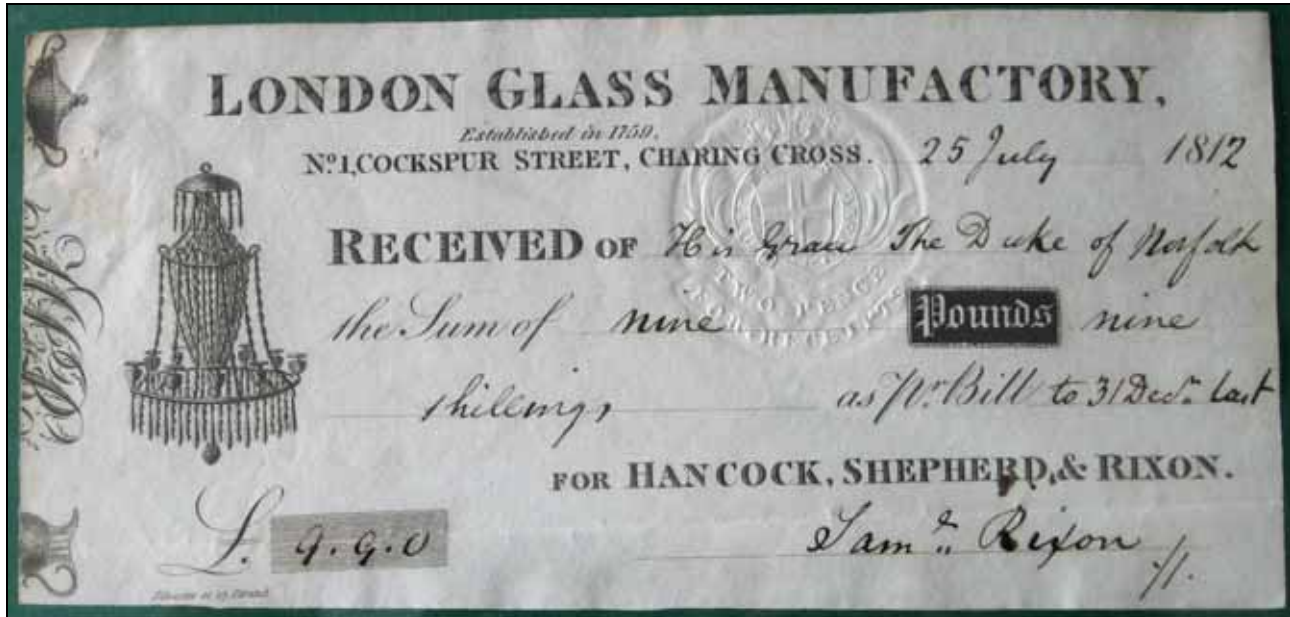 LONDON GLASS MANUFACTORY,
Established in 1759,
No. 1, COCKSPUR STREET, CHARING CROSS. 25 July 1812
RECEIVED OF His Grace The Duke of Norfolk
the Sum of nine Pounds nine
shillings as pr. Bill to 31 Decr. last
FOR HANCOCK, SHEPHERD, & RIXON.
£. 9.9.0
Saml. Rixon
TWO PENCE
FOR RECEIPTS